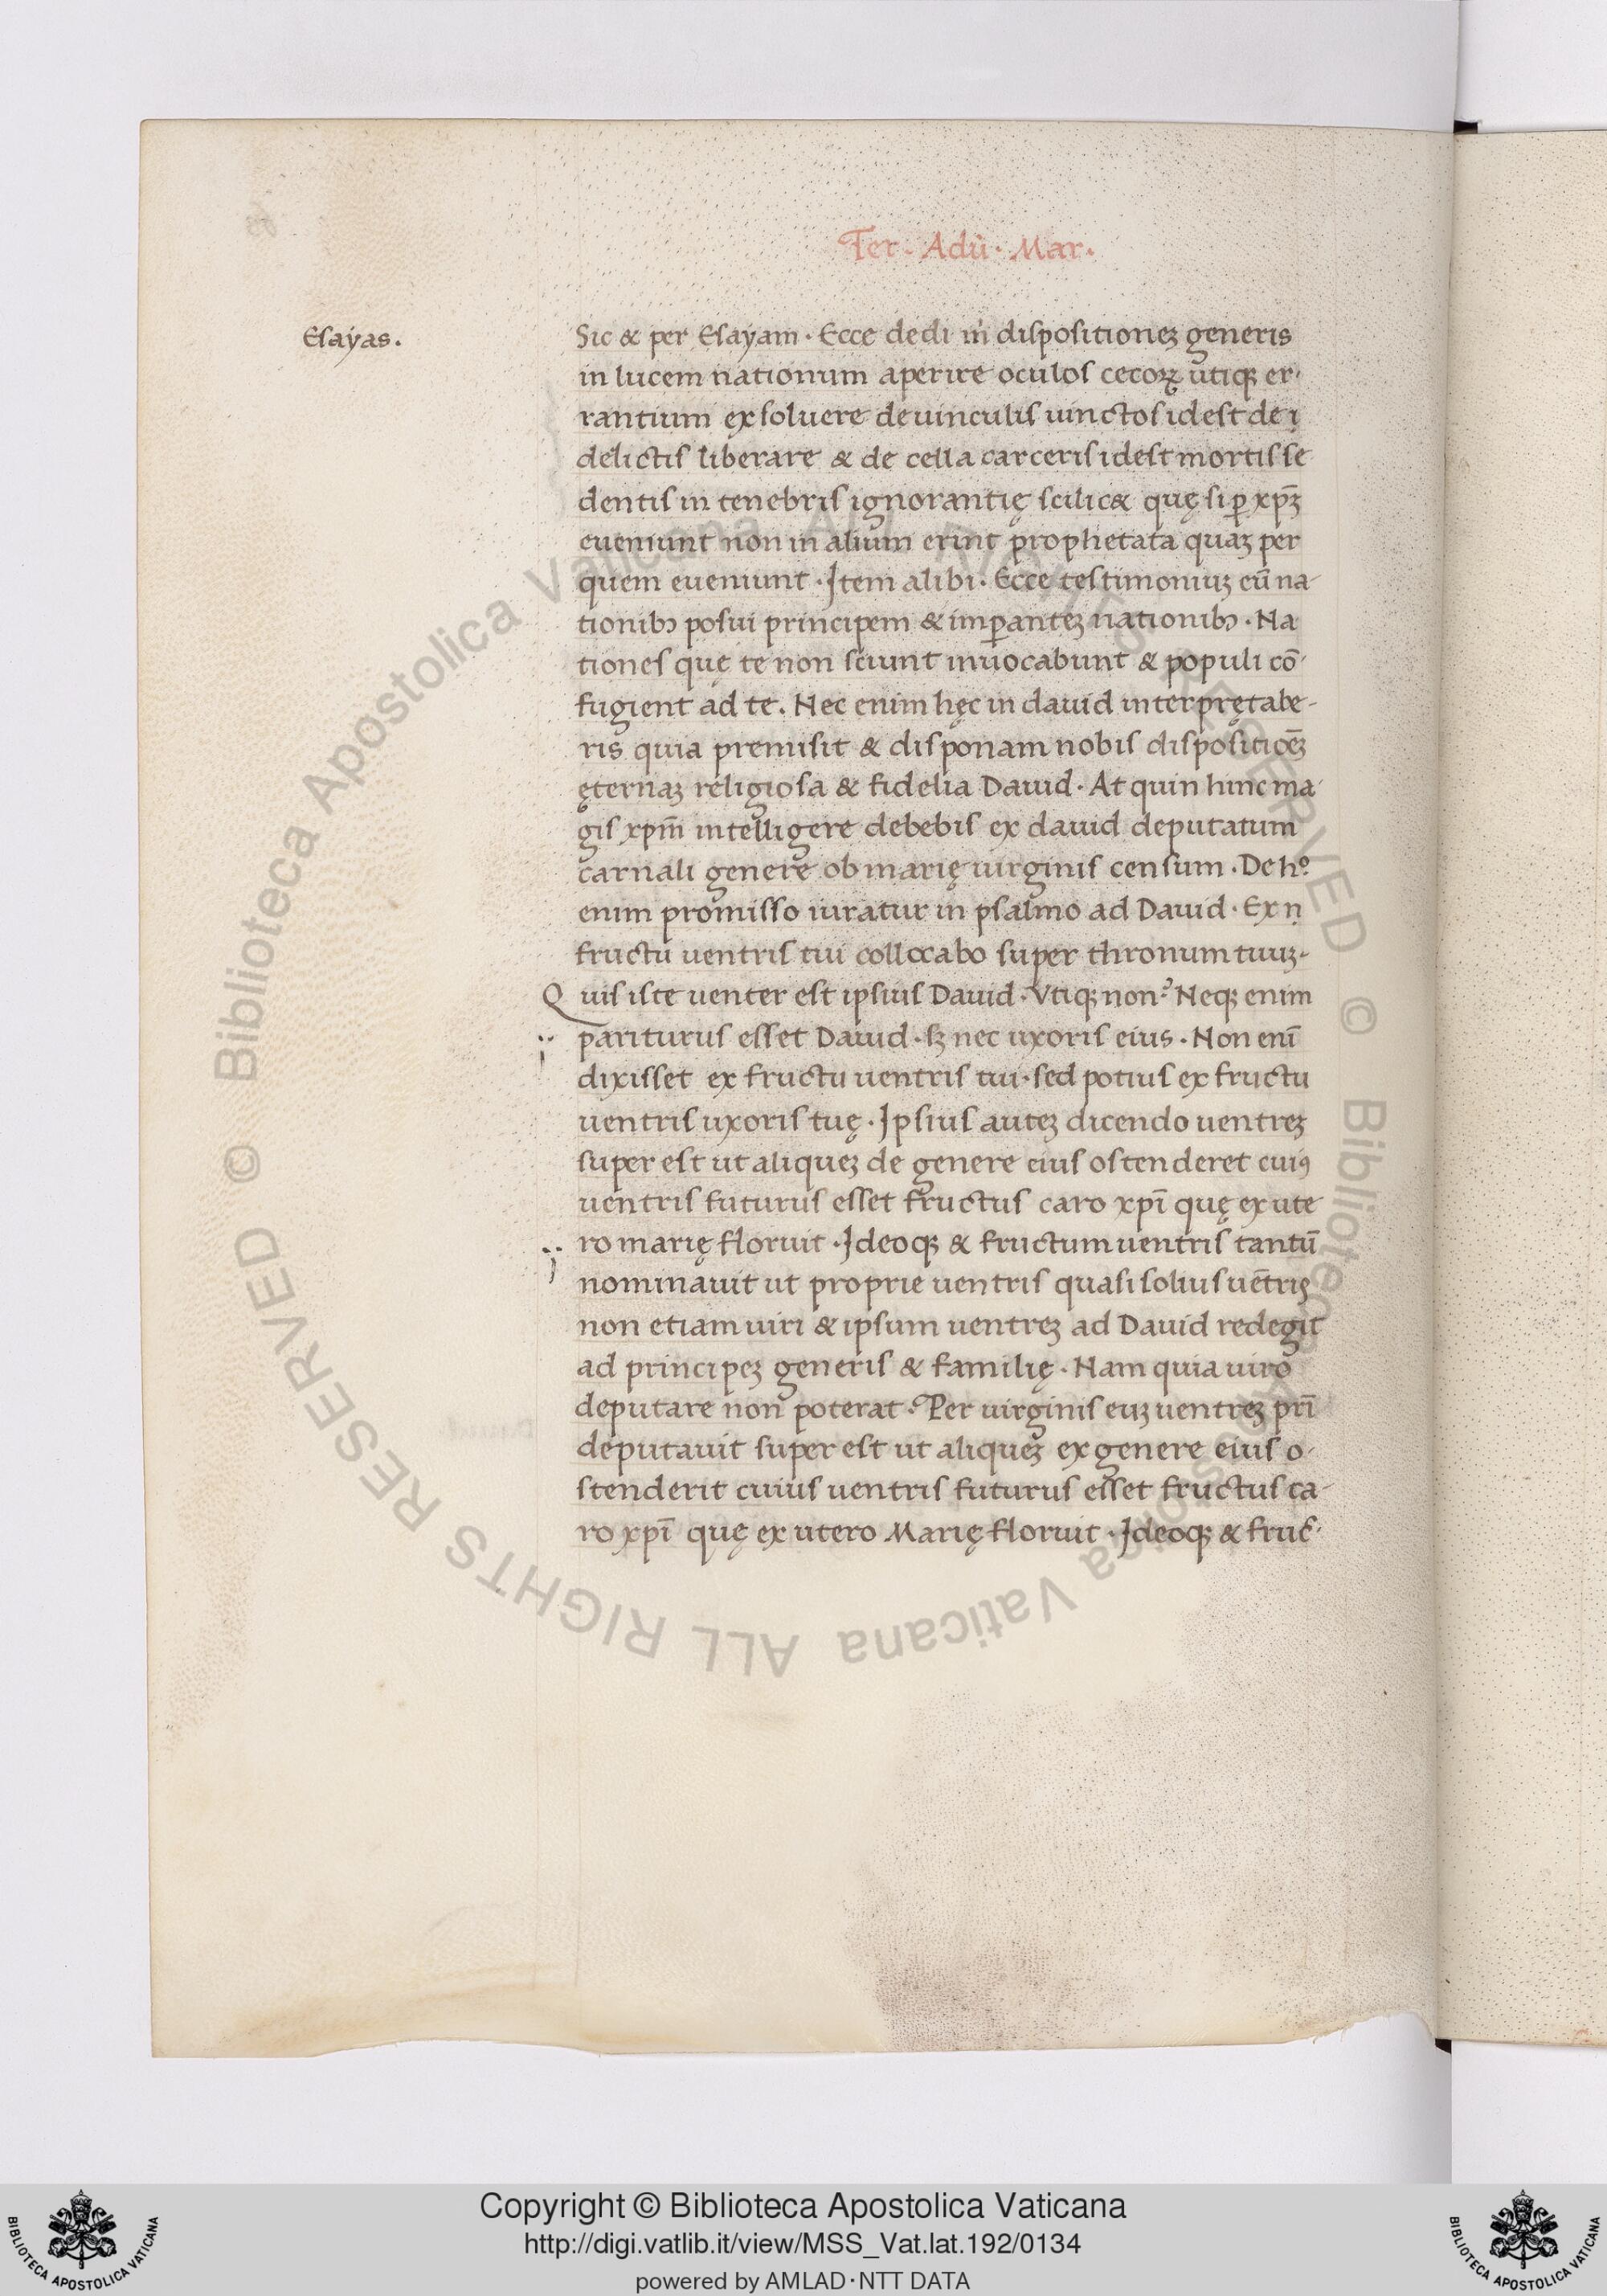 Ter. Adũ. Mar.
Esayas.
Sic & per Esayam. Ecce dedi in dispositionez generis
in lucem nationum aperire oculos cecoꝝ utiqꝫ er-
rantium exsoluere de uinculis uinctos idest de
delictis liberare & de cella carceris idest mortis se
dentis in tenebris ignorantię scilic& quę si ꝑ xp̄ꝫ
eueniunt non in alium erint prophetata quaꝫ per
quem eueniunt. Item alibi. Ecce testimoniuꝫ eū na-
tionibꝰ posui principem & imꝑanteꝫ nationibꝰ. Na
tiones quę te non sciunt inuocabunt & populi cō-
fugient ad te. Nec enim hęc in dauid interprętabe-
ris quia premisit & disponam nobis dispositiōeꝫ
ęternaꝫ religiosa & fidelia Dauid. At quin hinc ma-
gis xpm̄ intelligere debebis ex dauid deputatum
carnali genere ob marię uirginis censum. De hº
enim promisso iuratur in psalmo ad Dauid. Ex
fructu uentris tui collocabo super thronum tuuꝫ.
Quis iste uenter est ipsius Dauid. Vtiqꝫ non? Neqꝫ enim
pariturus esset Dauid. sꝫ nec uxoris eius. Non enī
dixisset ex fructu uentris tui. sed potius ex fructu
uentris uxoris tuę. Ipsius auteꝫ dicendo uentreꝫ
super est ut aliqueꝫ de genere eius ostenderet cuiꝰ
uentris futurus esset fructus caro xpī quę ex ute
ro marię floruit. Ideoqꝫ & fructum uentris tantū
nominauit ut proprie uentris quasi solius uētris
non etiam uiri & ipsum uentreꝫ ad Dauid redegit
ad principeꝫ generis & familię. Nam quia uiro
deputare non poterat. Per uirginis euꝫ uentreꝫ prī
deputauit super est ut aliqueꝫ ex genere eius o-
stenderit cuius uentris futurus esset fructus ca-
ro xpī quę ex utero Marię floruit. Ideoqꝫ & fruc̄-
© Biblioteca Apostolica Vaticana ALL RIGHTS RESERVED © Biblioteca Apostolica Vaticana ALL RIGHTS RESERVED
Copyright © Biblioteca Apostolica Vaticana
http://digi.vatlib.it/view/MSS_Vat.lat.192/0134
powered by AMLAD·NTT DATA
BIBLIOTECA APOSTOLICA VATICANA
BIBLIOTECA APOSTOLICA VATICANA